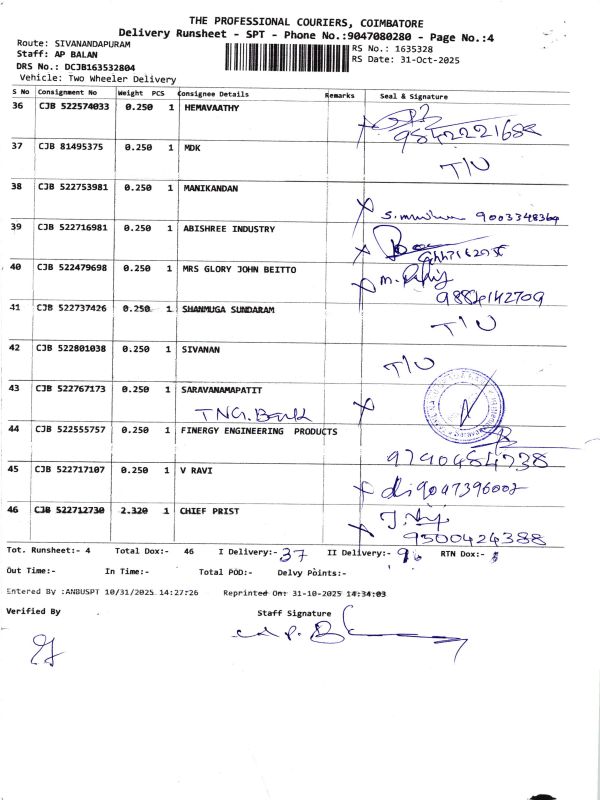 THE PROFESSIONAL COURIERS, COIMBATORE
Delivery Runsheet - SPT - Phone No.:9047080280 - Page No.:4
Route: SIVANANDAPURAM
RS No.: 1635328
Staff: AP BALAN
RS Date: 31-Oct-2025
DRS No.: DCJB163532804
Vehicle: Two Wheeler Delivery
S No Consignment No Weight PCS Consignee Details Remarks Seal & Signature
36 CJB 522574033 0.250 1 HEMAVAATHY
37 CJB 81495375 0.250 1 MDK T/U
38 CJB 522753981 0.250 1 MANIKANDAN
9003348369
39 CJB 522716981 0.250 1 ABISHREE INDUSTRY
40 CJB 522479698 0.250 1 MRS GLORY JOHN BEITTO
9884142709
41 CJB 522737426 0.250 1 SHANMUGA SUNDARAM T/U
42 CJB 522801038 0.250 1 SIVANAN T/U
43 CJB 522767173 0.250 1 SARAVANAMAPATIT
TNG. Bank
44 CJB 522555757 0.250 1 FINERGY ENGINEERING PRODUCTS
45 CJB 522717107 0.250 1 V RAVI
46 CJB 522712730 2.320 1 CHIEF PRIST
9500424388
Tot. Runsheet:- 4 Total Dox:- 46 I Delivery:- 37 II Delivery:- RTN Dox:-
Out Time:- In Time:- Total POD:- Delvy Points:-
Entered By :ANBUSPT 10/31/2025 14:27:26 Reprinted On: 31-10-2025 14:34:03
Verified By Staff Signature